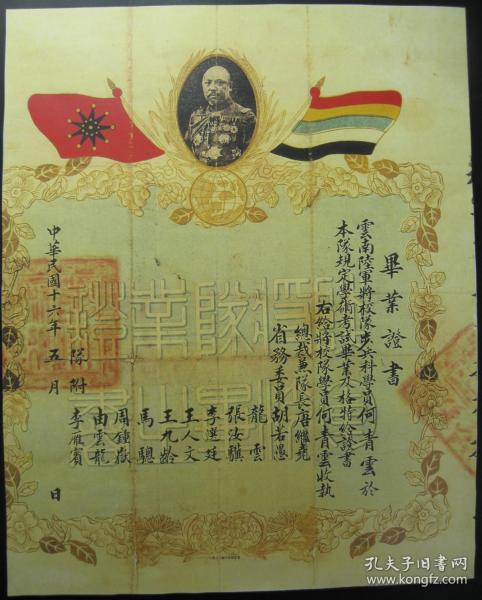 畢業證書
雲南陸軍將校隊步兵科學員何青雲於
本隊規定學術考試畢業及格特給證書
右給將校隊學員何青雲收執
總裁兼隊長唐繼堯
省務委員胡若愚
龍雲
張汝驥
李選廷
王人文
王九齡
馬驄
周鍾嶽
由雲龍
隊附李雁賓
中華民國十六年五月 日
孔夫子旧书网
www.kongfz.com